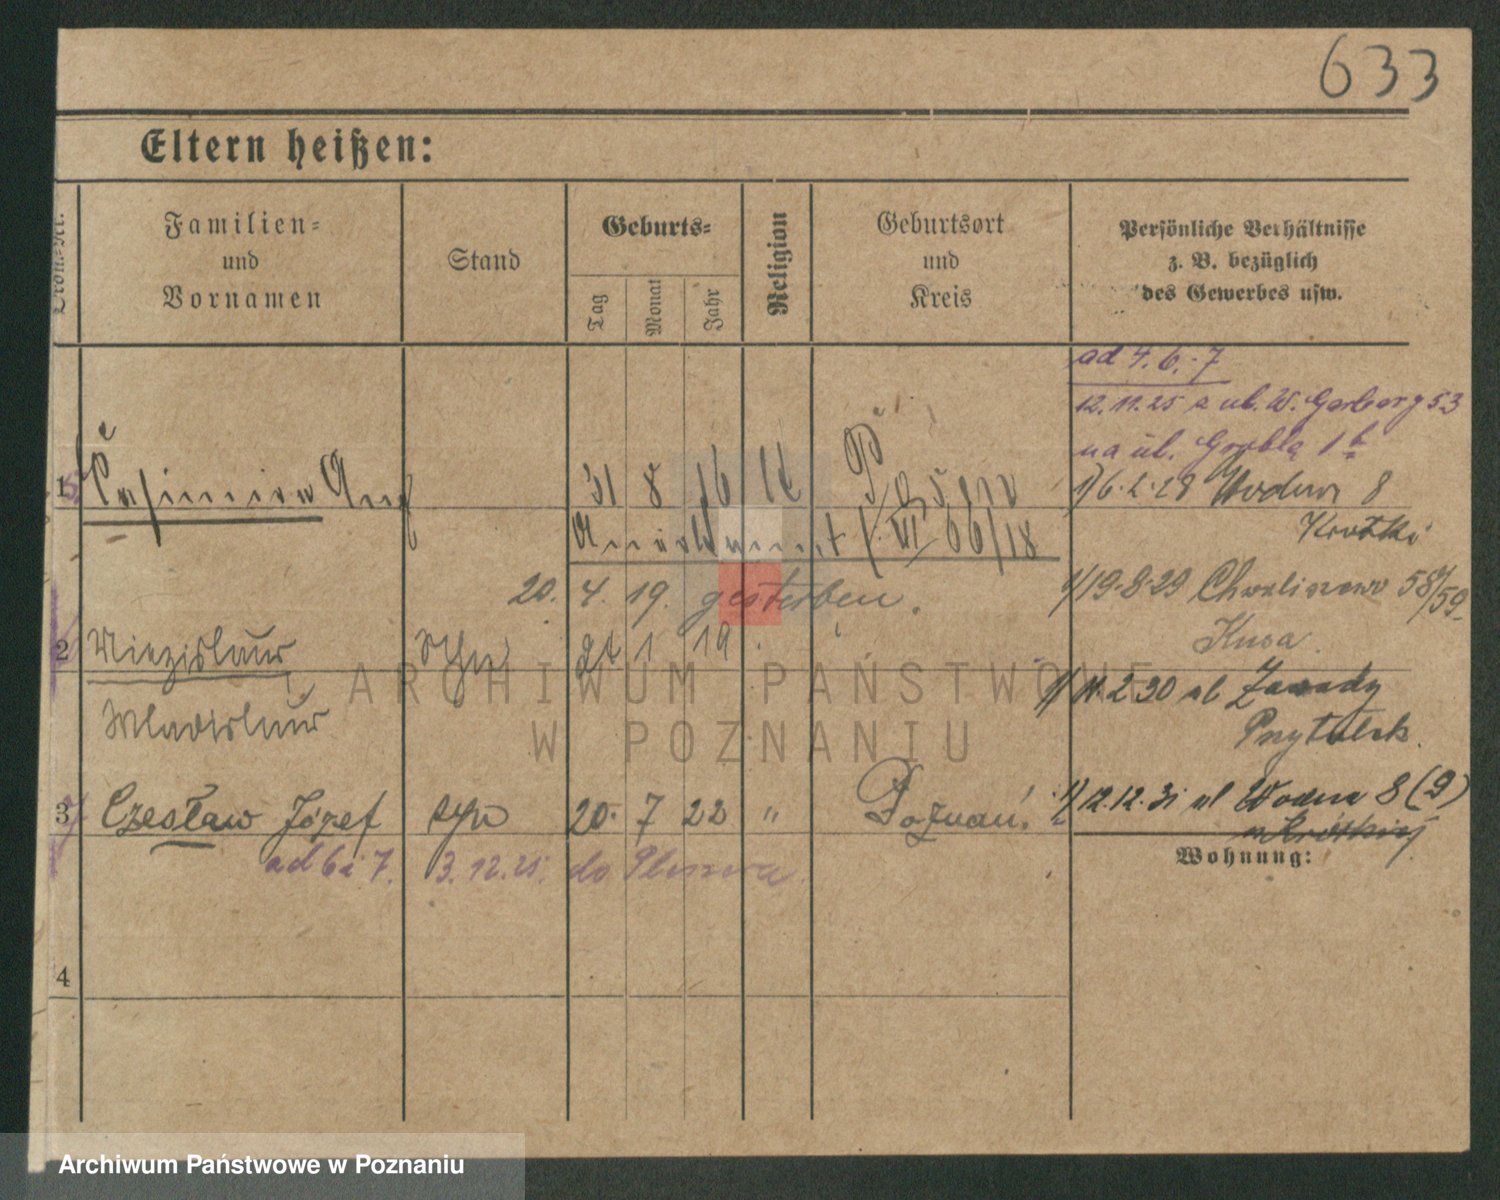 633
Eltern heißen:
Ordn.-Nr.
Familien-
und
Vornamen
Stand
Geburts-
Tag
Monat
Jahr
Religion
Geburtsort
und
Kreis
Persönliche Verhältnisse
z. B. bezüglich
des Gewerbes usw.
ad 4. 6. 7
12.11.25 z ul. W. Garbary 53
na ul. Grobla 1
1 Casimira 31 8 16
1) 6.2.28 Wodna 8
66/18
20. 4. 19. gestorben.
1) 19.8.29 Chwaliszewo 58/59
2 Miezislaus 1 19
Kusa.
Wladislaus
1) 11.2.30 ul Zawady
3 Czesław Józef syn 20. 7 22 " Poznań.
1) 12.12.31 ul Wodna 8 (9)
ad 6 i 7. 3.12.25. do
Wohnung:
4
ARCHIWUM PAŃSTWOWE
W POZNANIU
Archiwum Państwowe w Poznaniu